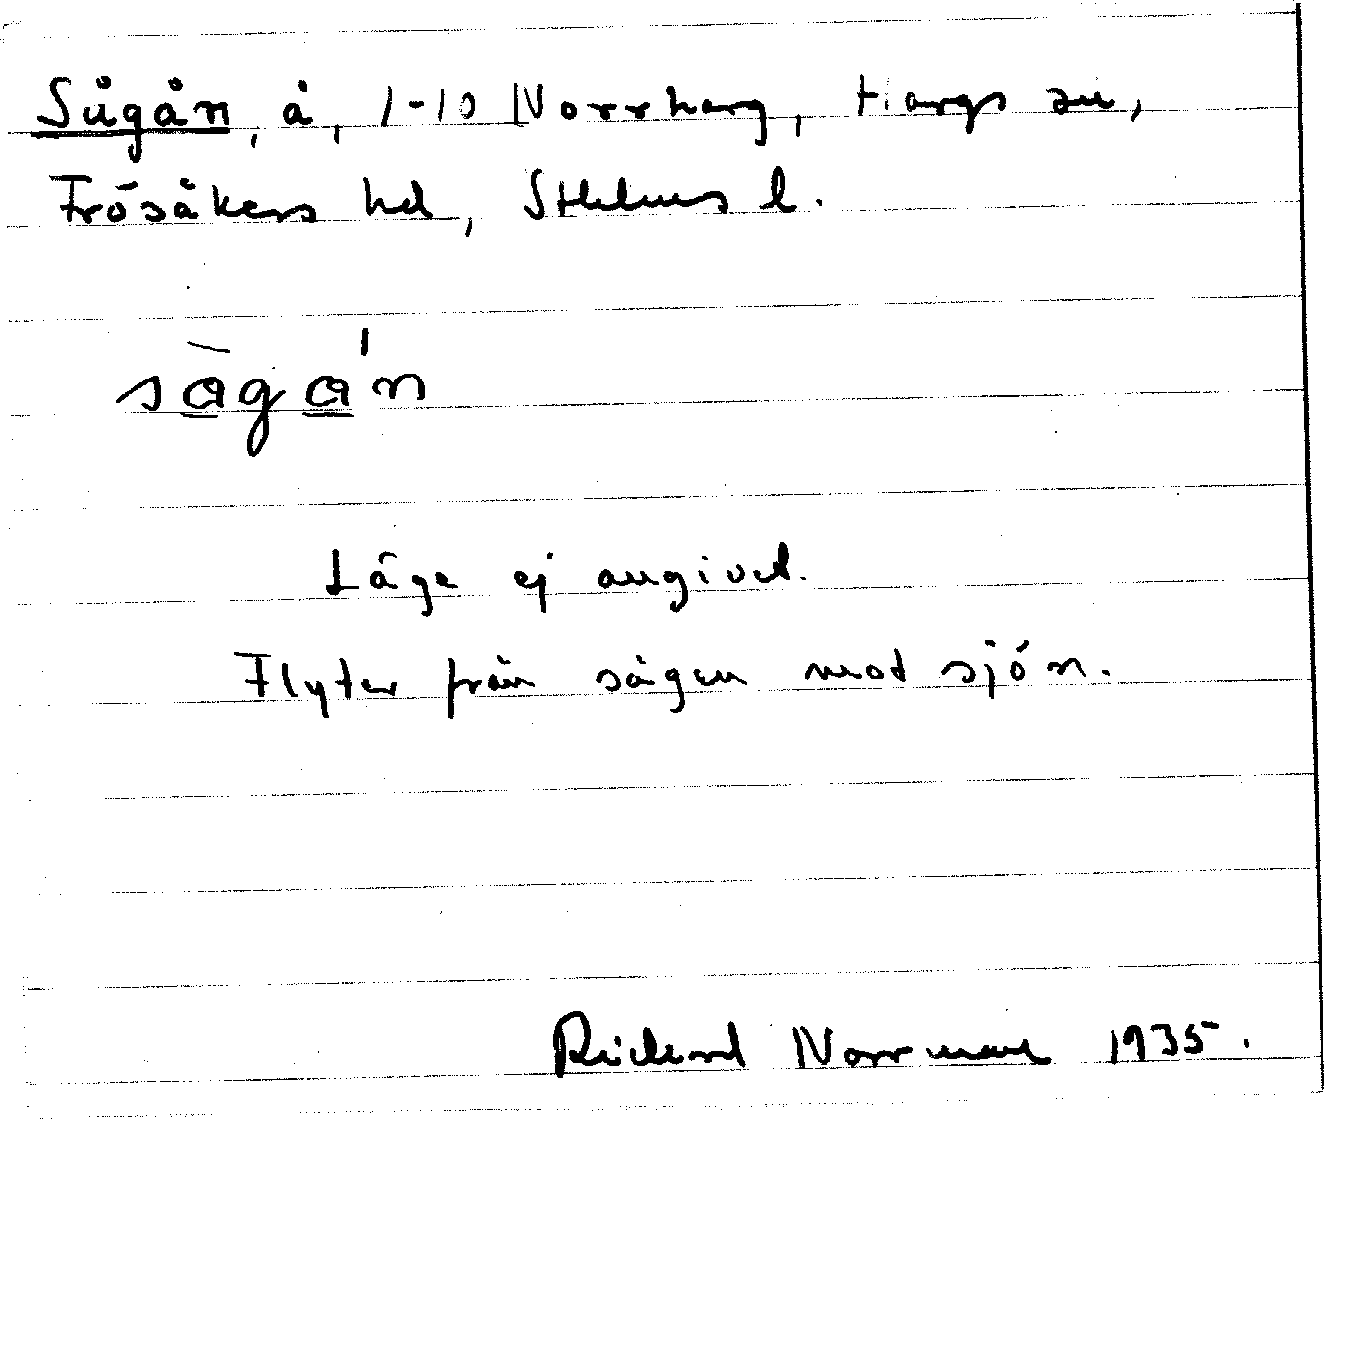 Sågån, å, 1-10 Norrharg, Hargs sn,
Frösåkers hd, Sthlms l.
sàgán
Läge ej angivet.
Flyter från sågen mot sjön.
Richard Norrman 1935.